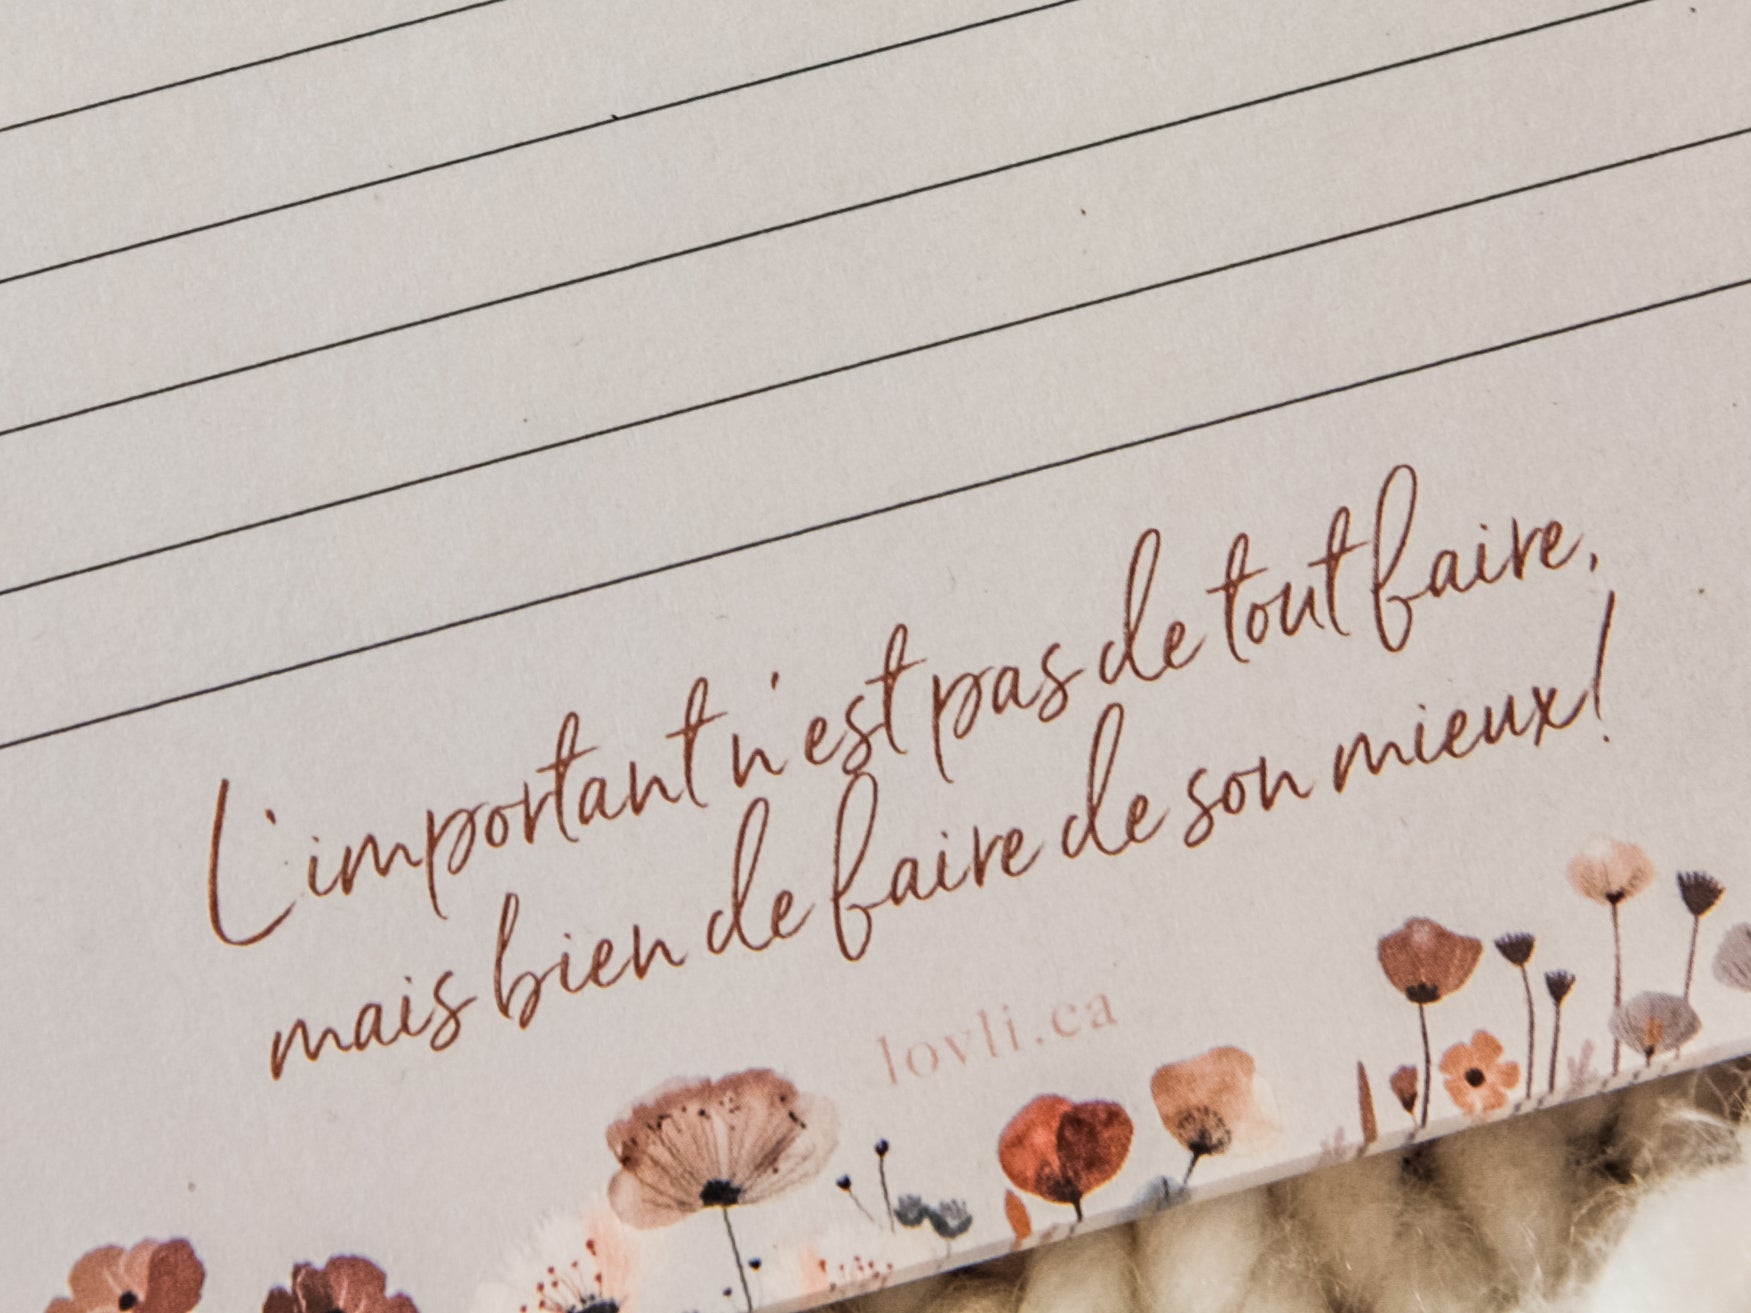 L'important n'est pas de tout faire,
mais bien de faire de son mieux!
lovli.ca